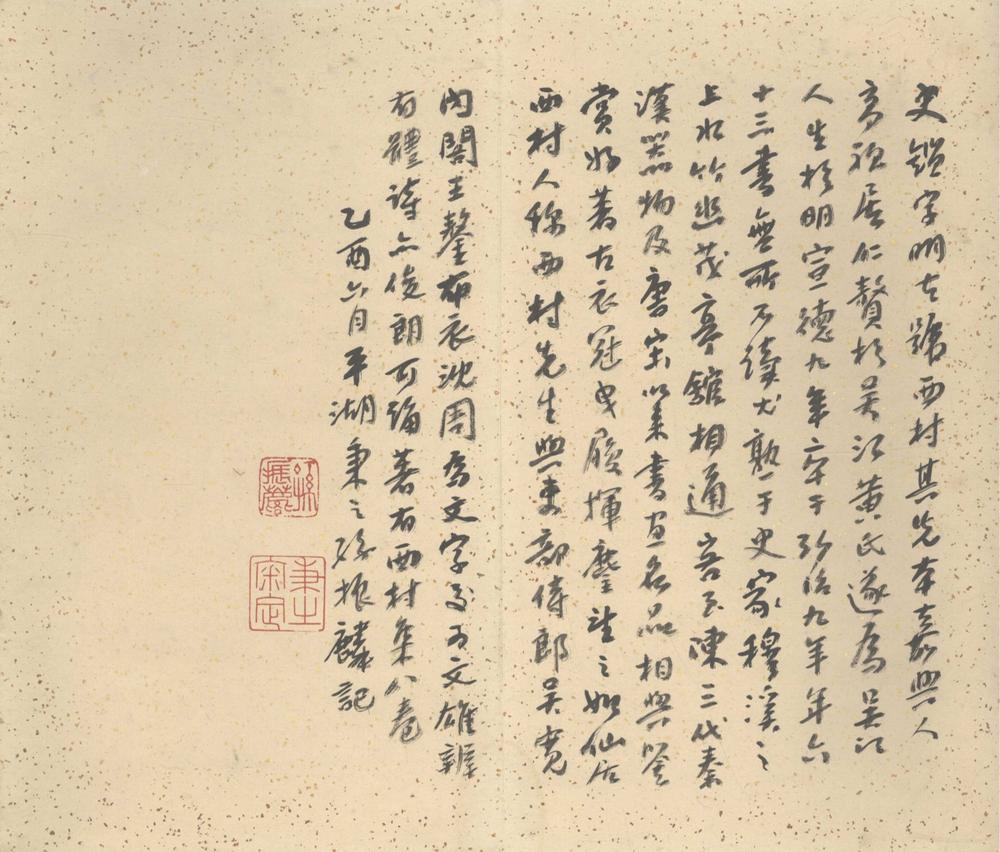 史鑑字明古號西村其先本嘉興人
高祖居仁贅於吳江黃氏遂爲吳江
人生於明宣德九年卒于弘治九年年六
十三書無所不讀尤熟于史家穆溪之
上水竹幽茂亭館相通客至陳三代秦
漢器物及唐宋以來書畫名品相與鑒
賞好著古衣冠曳履揮麈望之如仙居
西村人稱西村先生與吏部侍郎吳寬
內閣王鏊布衣沈周爲文字交爲文雄辨
有體詩亦俊朗可誦著有西村集八卷
乙酉六月平湖秉之孫振麟記
孫振麟
秉之